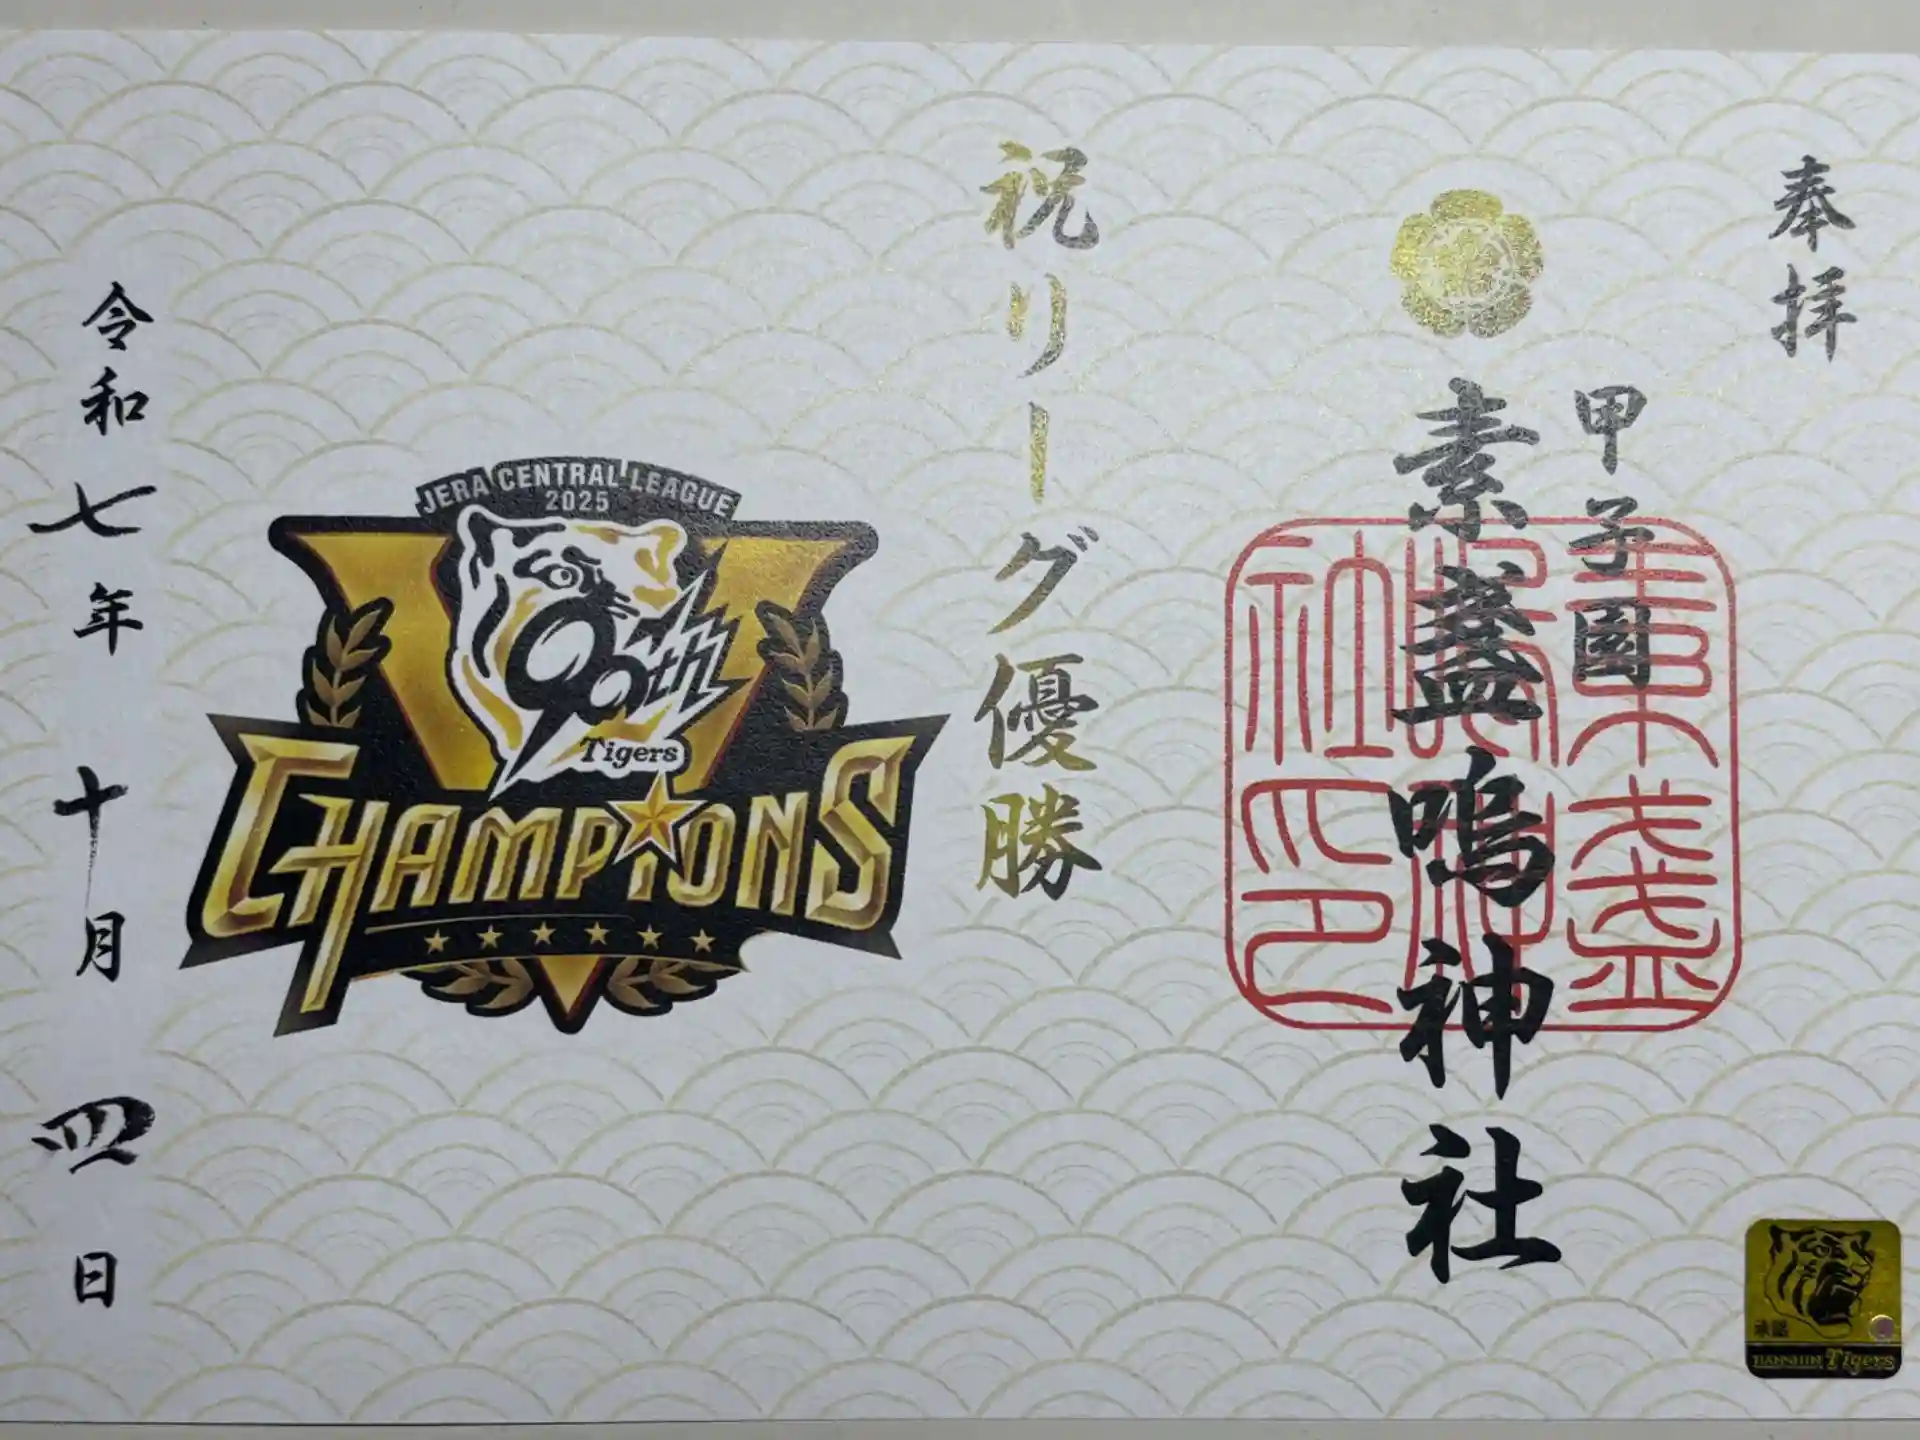 奉拝
甲子園
素盞嗚神社
素盞
嗚神
社印
祝リーグ優勝
JERA CENTRAL LEAGUE
2025
90th
Tigers
CHAMPIONS
令和七年 十月 四日
承認
HANSHIN Tigers